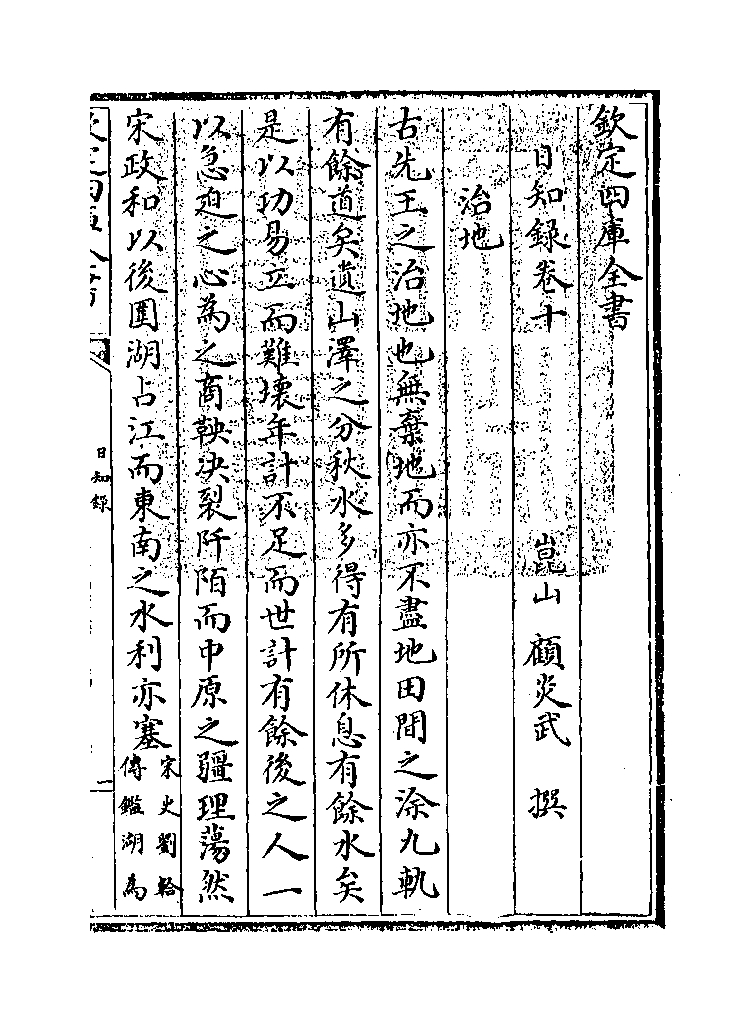 欽定四庫全書
日知錄卷十
崑山 顧炎武 撰
治地
古先王之治地也無棄地而亦不盡地田間之涂九軌
有餘道矣遺山澤之分秋水多得有所休息有餘水矣
是以功易立而難壞年計不足而世計有餘後之人一
以急迫之心為之商鞅決裂阡陌而中原之疆理蕩然
宋政和以後圍湖占江而東南之水利亦塞
宋史劉韐
傳鑑湖為
日知錄